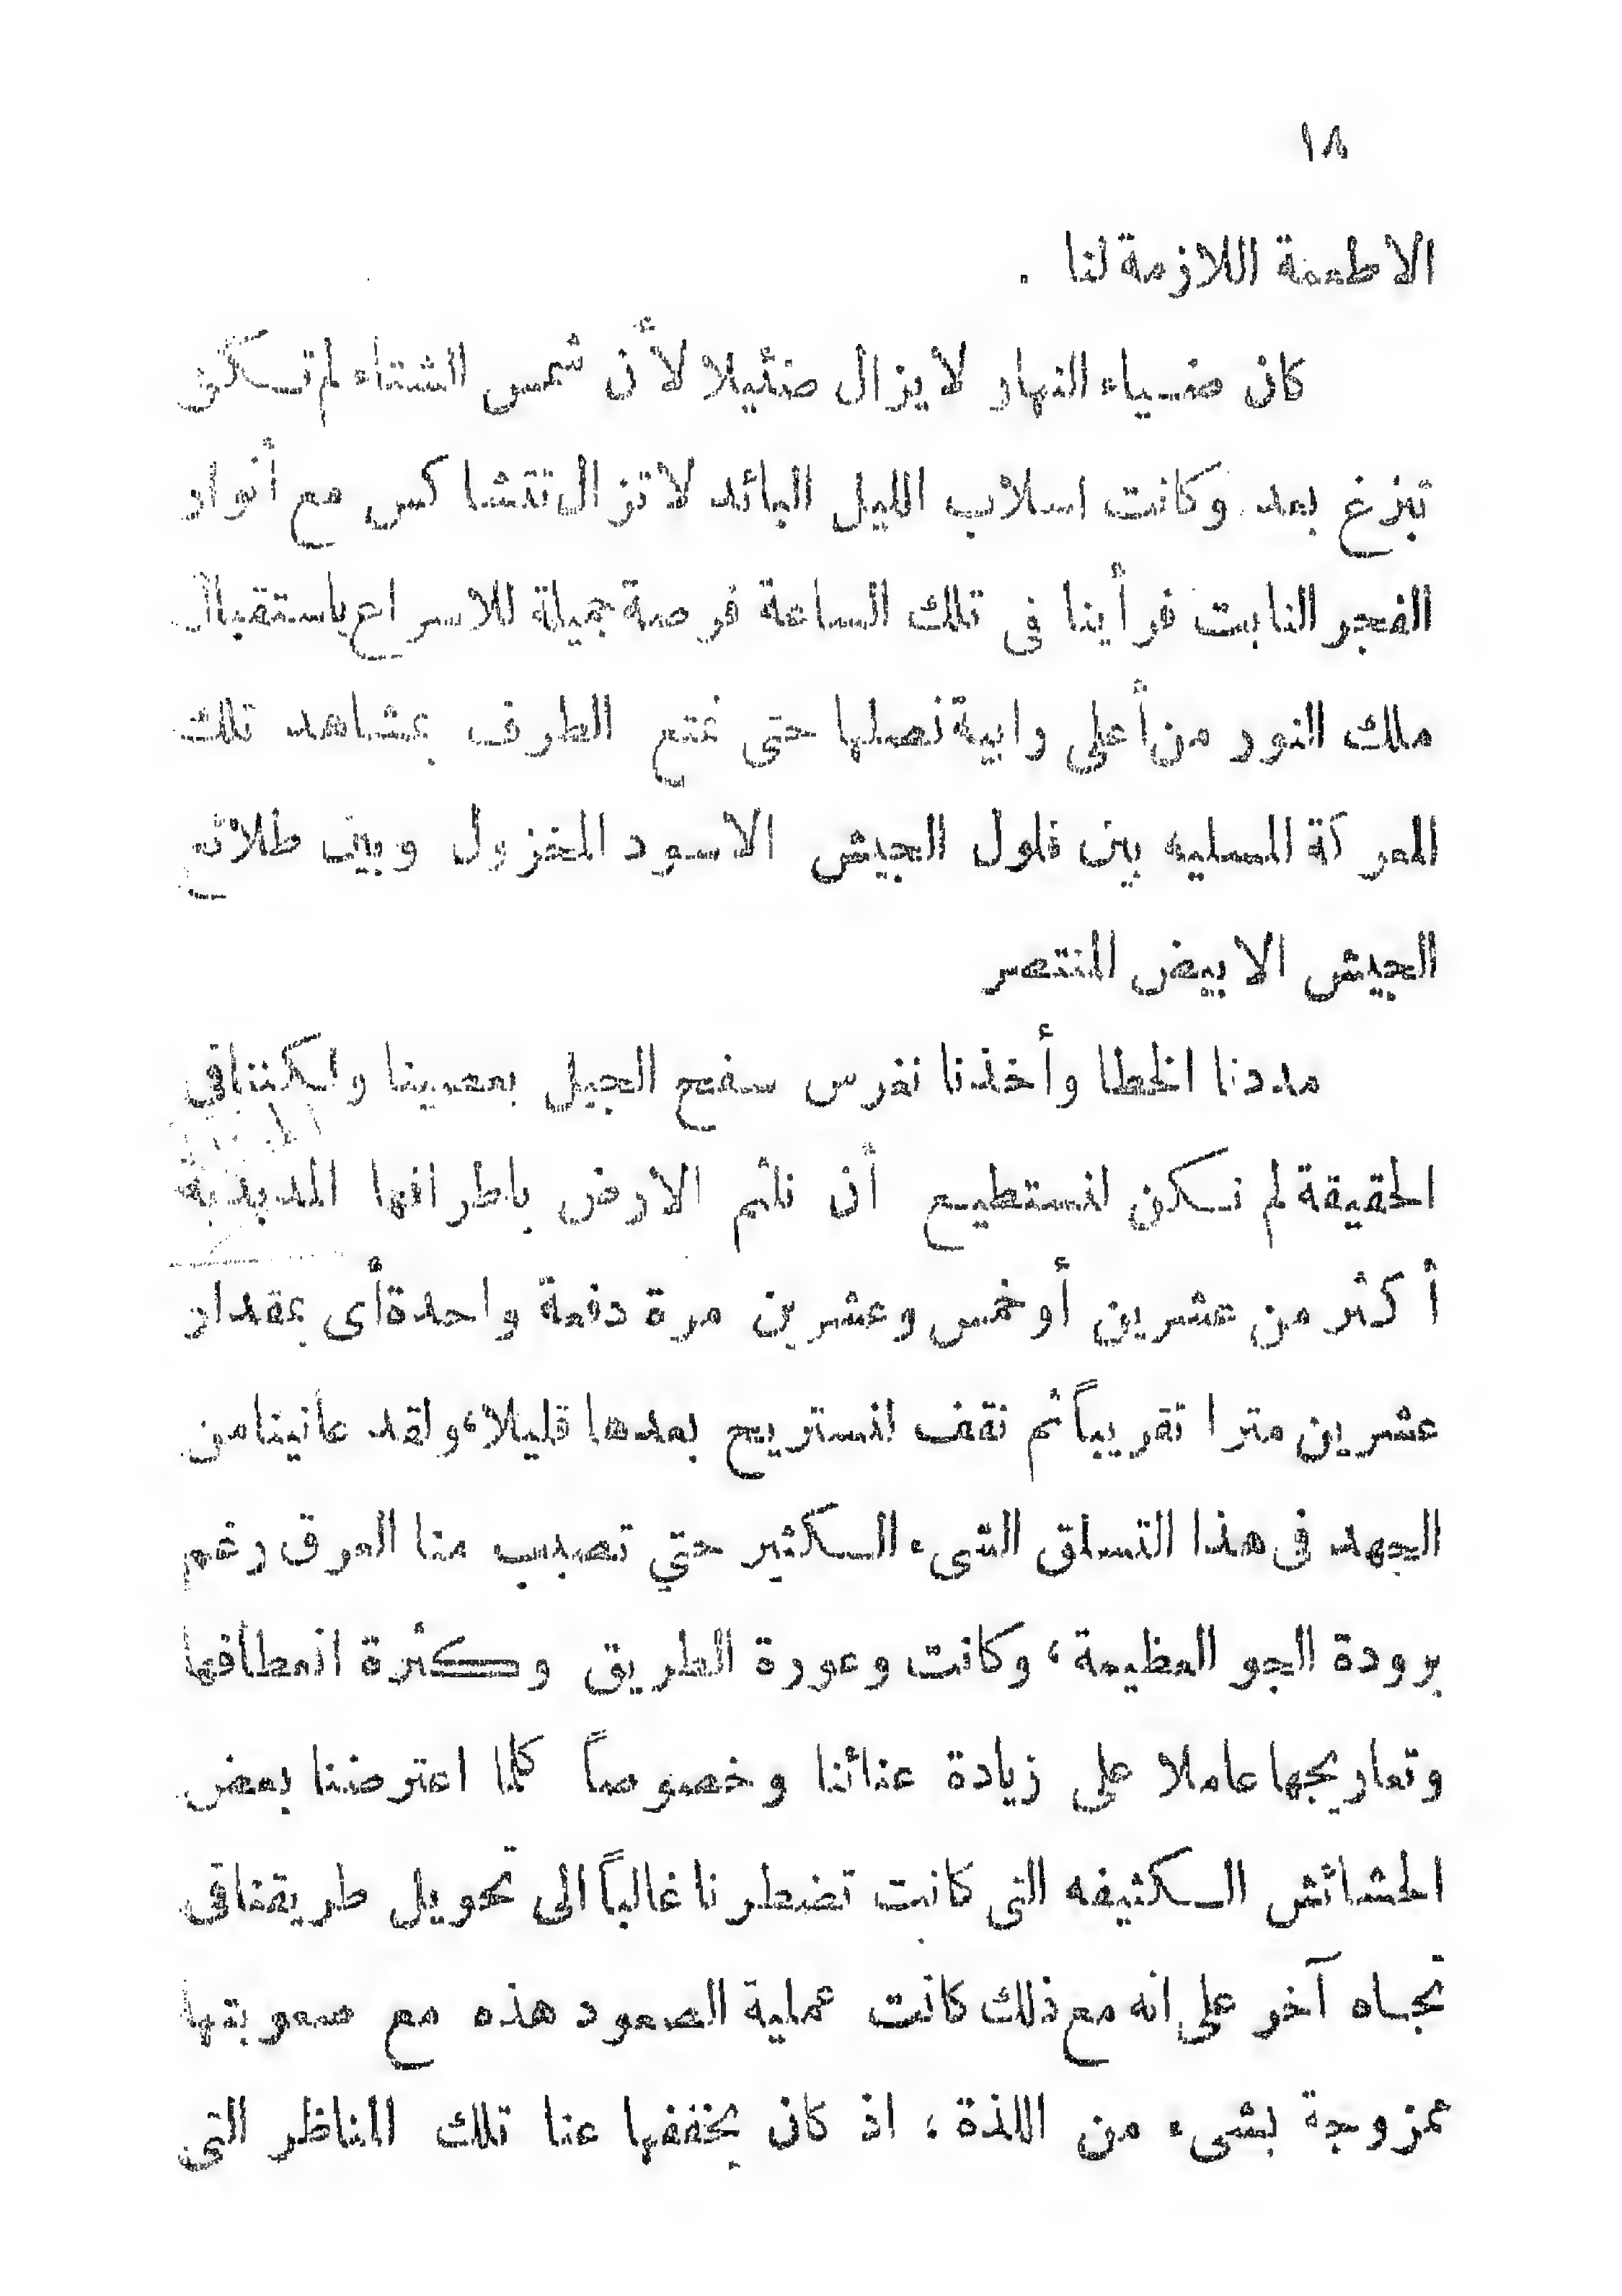 ١٨
الاطعمة اللازمة لنا .
كان ضياء النهار لا يزال ضئيلا لأن شمس الشتاء لم تكن
تبزغ بعد وكانت اسلاب الليل البائد لا تزال تتشاكس مع أنوار
الفجر النابت فرأينا فى تلك الساعة فرصة جميلة للاسراع باستقبال
ملك النور من أعلى رابية نصلها حتى نمتع الطرف بمشاهد تلك
المعركة المسليه بين فلول الجيش الاسود المخزول وبين طلائع
الجيش الابيض المنتصر
مددنا الخطا وأخذنا نغرس سفح الجبل بعصينا ولكننا فى
الحقيقة لم نكن لنستطيع أن نلثم الارض باطرافها المدببة
أكثر من عشرين أو خمس وعشرين مرة دفعة واحدة أى بمقدار
عشرين مترا تقريباً ثم نقف لنستريح بعدها قليلا، ولقد عانينا من
الجهد فى هذا التسلق الشىء الكثير حتي تصبب منا العرق رغم
برودة الجو العظيمة، وكانت وعورة الطريق وكثرة انعطافها
وتعاريجها عاملا على زيادة عنائنا وخصوصاً كلما اعترضنا بعض
الحشائش الكثيفه التى كانت تضطرنا غالباً الى تحويل طريقنا فى
تجاه آخر على انه مع ذلك كانت عملية الصعود هذه مع صعوبتها
ممزوجة بشىء من اللذة، اذ كان يخففها عنا تلك المناظر التى